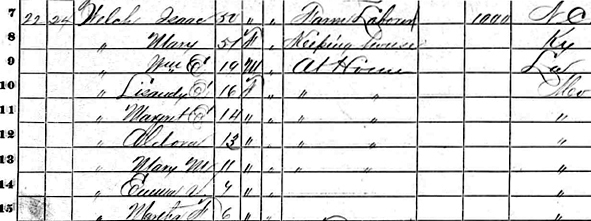 7 22 24 Welch Isaac 52 " " Farm Laborer 1000 N C
8 " Mary 51 F " Keeping house Ky
9 " Wm E 19 M " At Home
10 " E 16 F " " " Mo
11 " E 14 " " " " "
12 " 13 " " "
13 " Mary M 11 " " " " "
14 " " " "
15 " Martha F 6 " " "